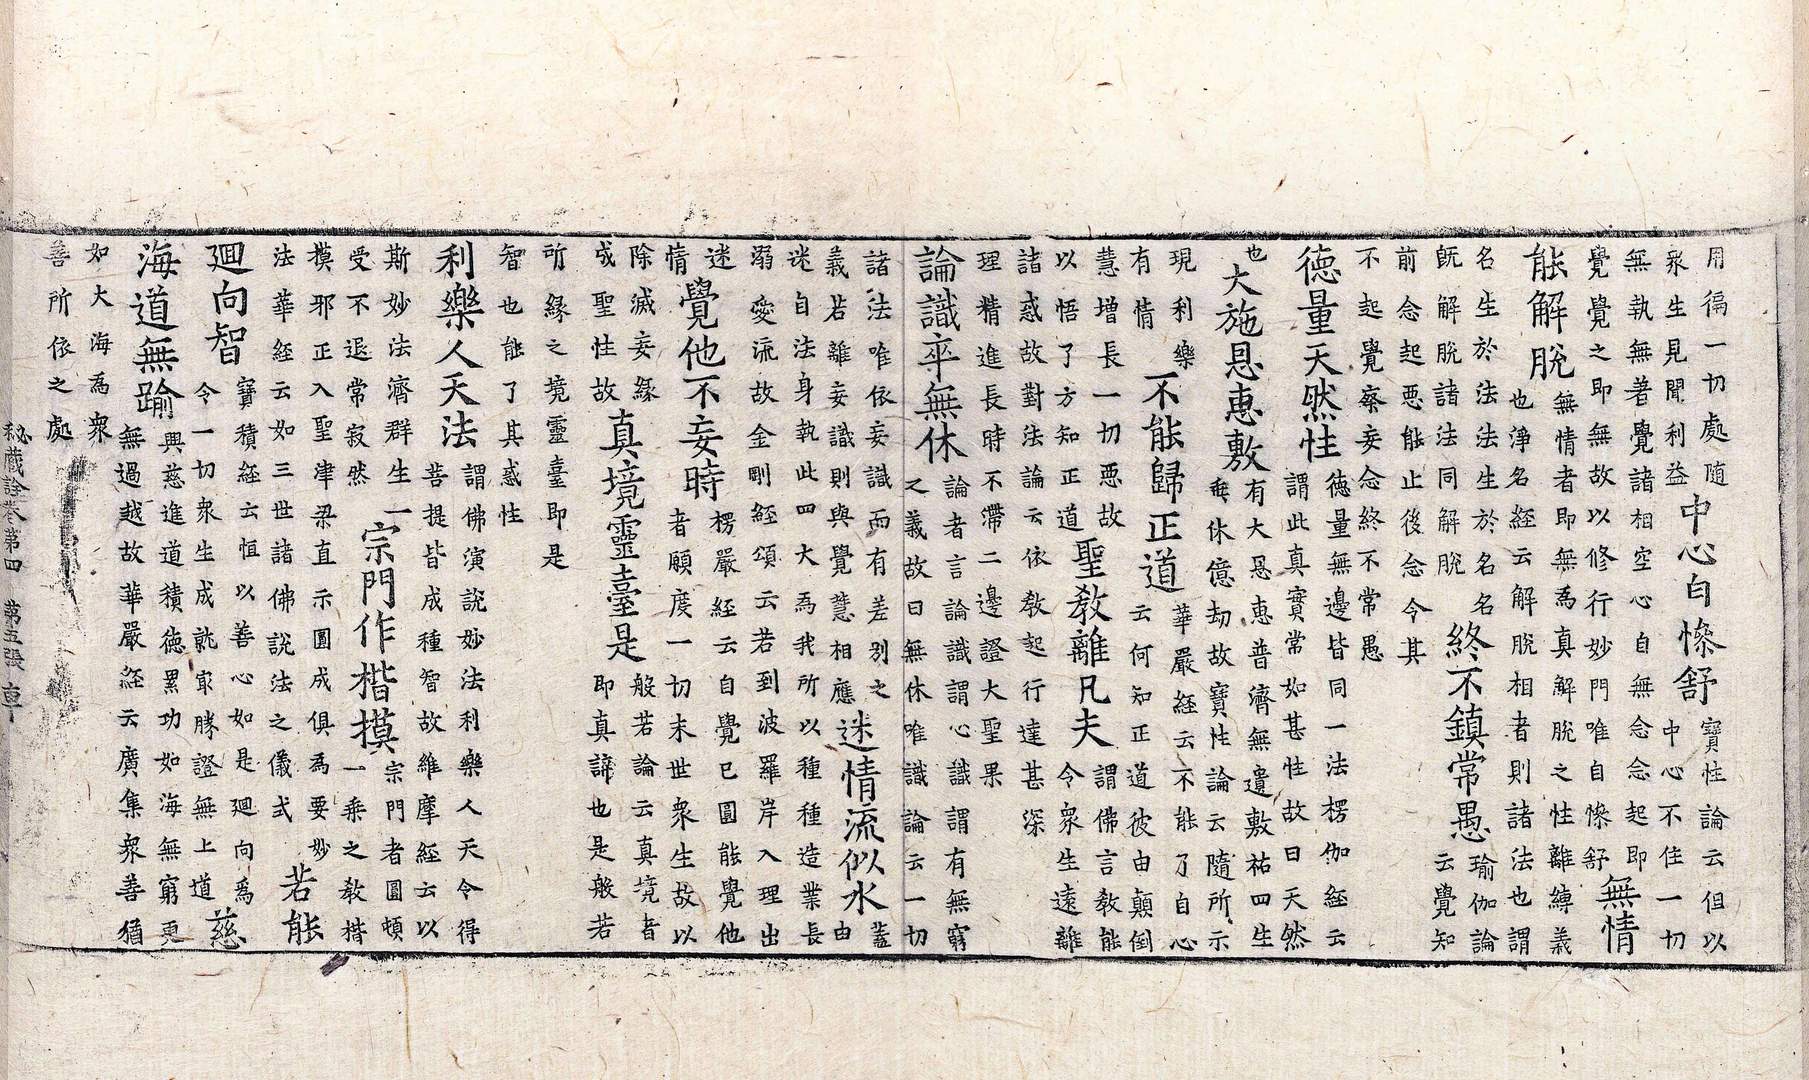 用徧一切處隨
衆生見聞利益
中心自慘舒
寶性論云但以
中心不住一切
無執無著覺諸相空心自無念念起即
覺覺之即無故以修行妙門唯自慘舒
無情
能解脫
無情者即無為真解脫之性離縛義
也淨名經云解脫相者則諸法也謂
名生於法法生於名名
既解脫諸法同解脫
終不鎮常愚
瑜伽論
云覺知
前念起惡能止後念令其
不起覺察妄念終不常愚
德量天然性
德量無邊皆同一法楞伽經云
謂此真實常如甚性故曰天然
也
大施恩惠敷
有大恩惠普濟無遺敷祐四生
垂休億劫故寶性論云隨所示
現利樂
有情
不能歸正道
華嚴經云不能了自心
云何知正道彼由顛倒
慧增長一切惡故
以悟了方知正道
聖教離凡夫
謂佛言教能
令衆生遠離
諸惑故對法論云依教起行達甚深
理精進長時不滯二邊證大聖果
論識卒無休
論者言論識謂心識謂有無窮
之義故曰無休唯識論云一切
諸法唯依妄識而有差別之
義若離妄識則與覺慧相應
迷情流似水
蓋
由
迷自法身執此四大為我所以種種造業長
溺愛流故金剛經頌云若到波羅岸入理出
迷
情
覺他不妄時
楞嚴經云自覺已圓能覺他
者願度一切末世衆生故以
除滅妄緣
成聖性故
真境靈臺是
般若論云真境者
即真諦也是般若
所緣之境靈臺即是
智也能了其惑性
利樂人天法
謂佛演說妙法利樂人天令得
菩提皆成種智故維摩經云以
斯妙法濟群生一
受不退常寂然
宗門作楷摸
宗門者圓頓
一乘之教楷
摸邪正入聖津梁直示圓成俱為要妙
法華經云如三世諸佛說法之儀式
若能
迴向智
寶積經云恒以善心如是迴向為
令一切衆生成就冣勝證無上道
慈
海道無踰
興慈進道積德累功如海無窮更
無過越故華嚴經云廣集衆善猶
如大海為衆
善所依之處
秘藏詮卷第四 第五張 車